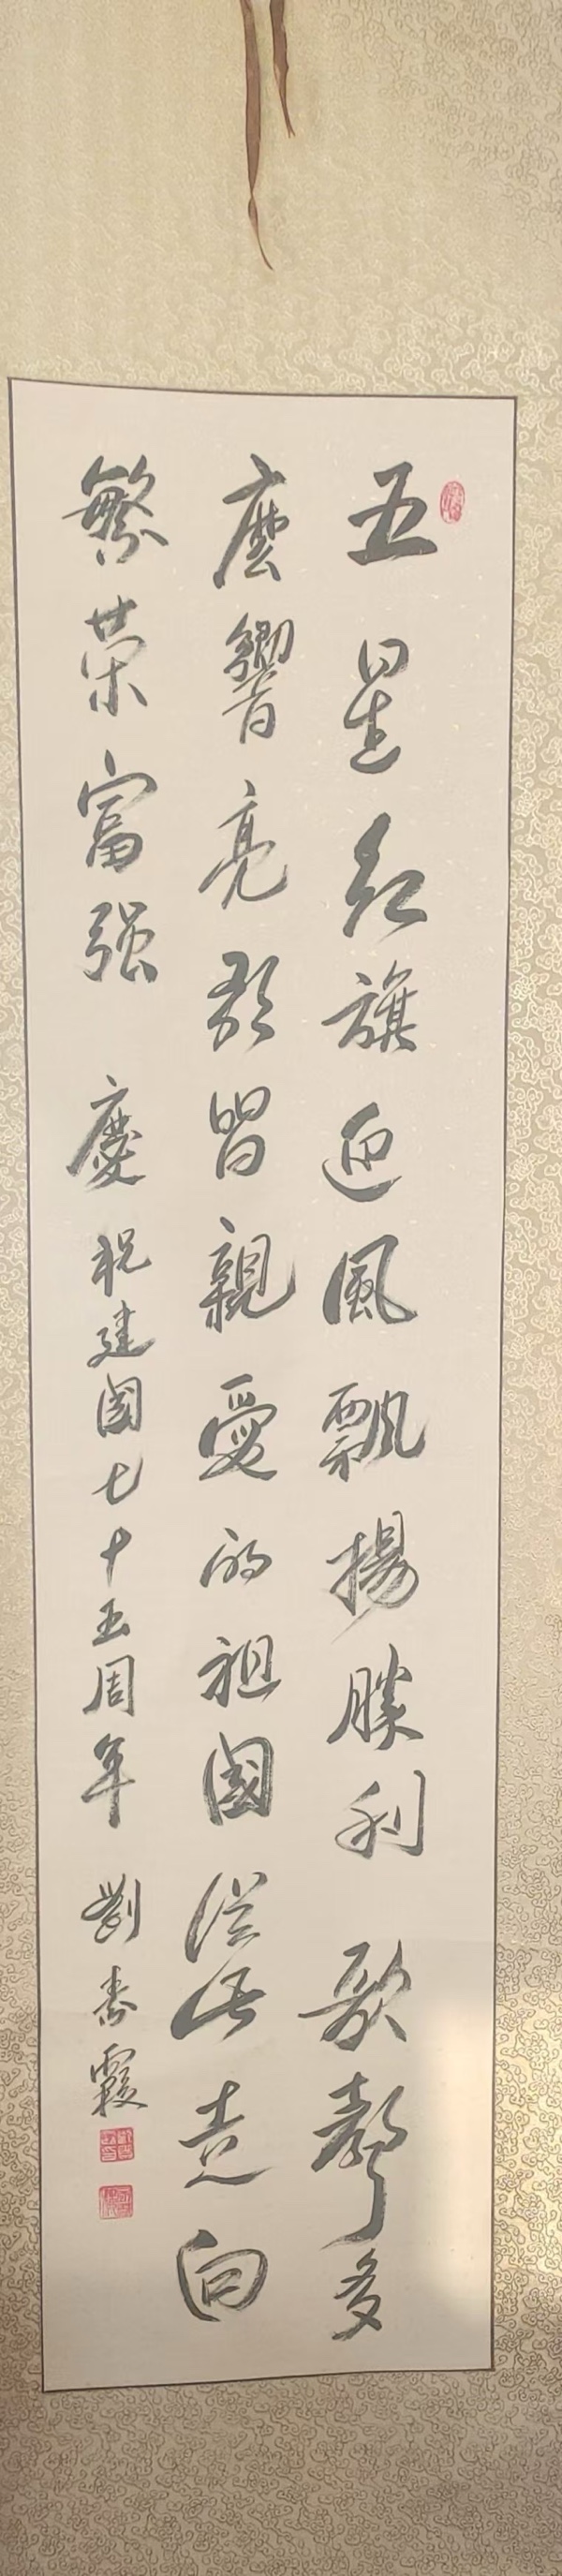 五星红旗迎風飄揚勝利歌聲多
麽響亮歌唱親愛的祖國從此走向
繁荣富强 慶祝建國七十五周年 劉秀霞